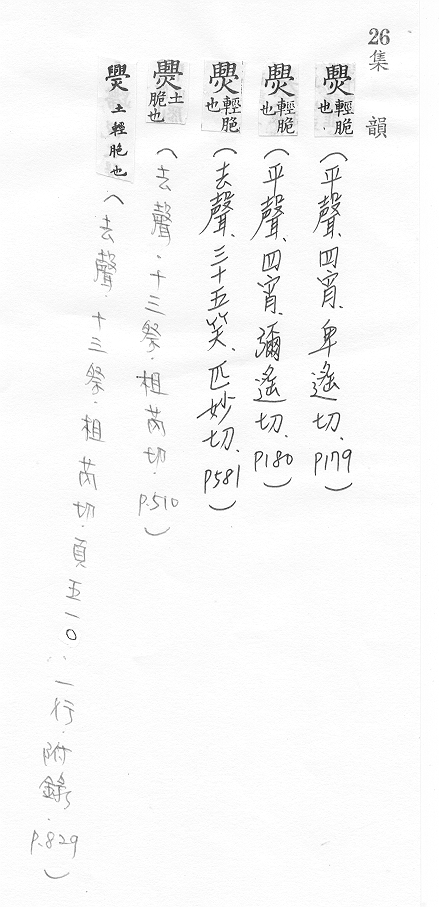 26
集韻
㷼輕脆也(平聲、四宵、卑遙切、P179)
㷼輕脆也(平聲、四宵、彌遙切、P180)
㷼輕脆也(去聲、三十五笑、匹妙切、P581)
㷼土脆也(去聲.十三祭.祖芮切.P.510)
㷼土輕脆也(去聲.十三祭.祖芮切.頁五一○:一行.附錄.P.829)